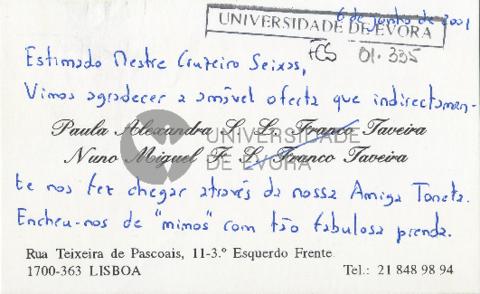 6 de Junho de 2001
UNIVERSIDADE DE EVORA
FCS 01.335
Estimado Mestre Cruzeiro Seixas,
Vimos agradecer a amável oferta que indirectamen-
Paula Alexandra S. L. Franco Taveira
Nuno Miguel F. L. Franco Taveira
UNIVERSIDADE
DE EVORA
te nos fez chegar através da nossa Amiga Toneta.
Encheu-nos de "mimos" com tão fabulosa prenda.
Rua Teixeira de Pascoais, 11-3.º Esquerdo Frente
1700-363 LISBOA
Tel.: 21 848 98 94